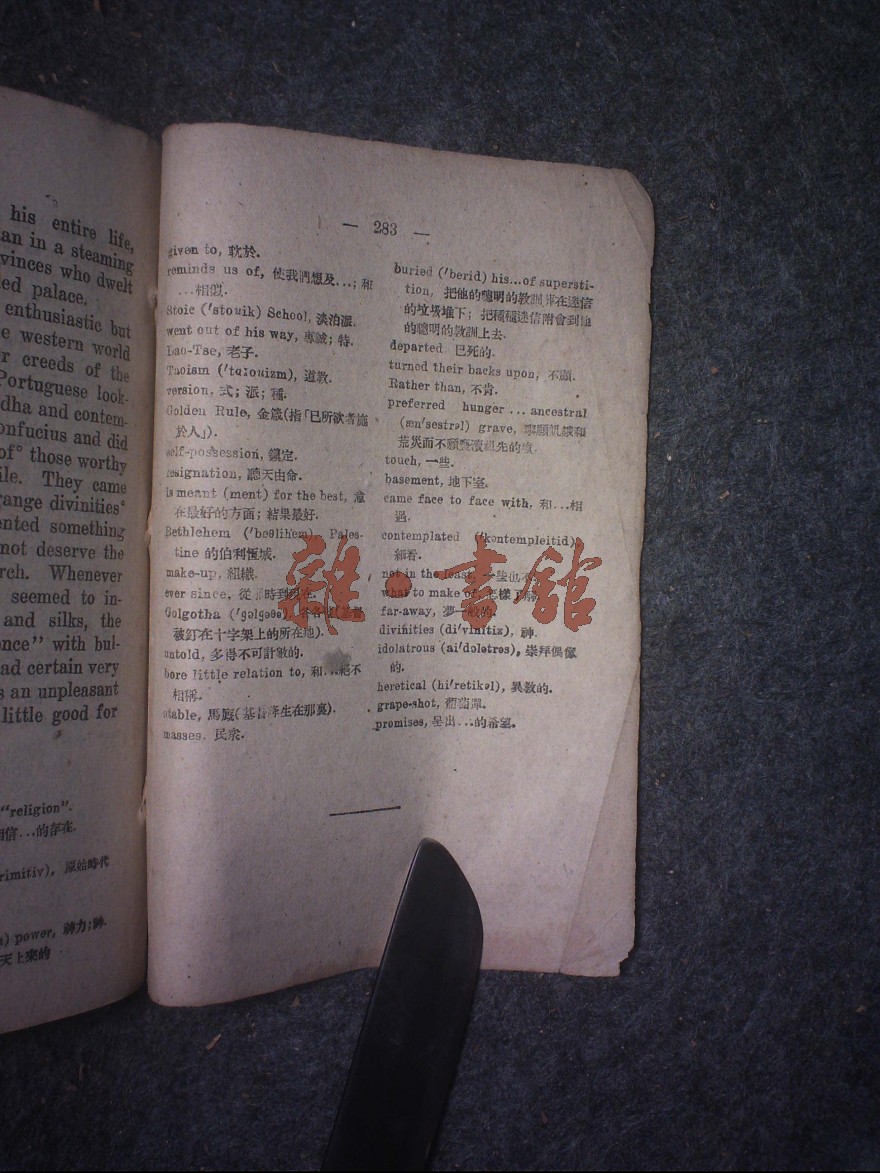 his entire life,
an in a steaming
vinces who dwelt
ed palace.
enthusiastic but
e western world
r creeds of the
Portuguese look-
dha and contem-
onfucius and did
of° those worthy
ile. They came
range divinities°
ented something
not deserve the
rch. Whenever
seemed to in-
and silks, the
ence” with bul-
ad certain very
s an unpleasant
little good for
“religion”.
相信...的存在.
rimitiv), 原始時代
) power, 神力;神.
天上來的
— 283 —
given to, 耽於.
reminds us of, 使我們想及...; 和
...相似.
Stoic ('stouik) School, 淡泊派.
went out of his way, 專誠; 特.
Lao-Tse, 老子.
Taoism ('tɑːouizm), 道教.
version, 式; 派; 種.
Golden Rule, 金箴(指「已所欲者施
於人」).
self-possession, 鎮定.
resignation, 聽天由命.
is meant (ment) for the best, 意
在最好的方面; 結果最好.
Bethlehem ('beθlihem), Pales-
tine 的伯利恆城.
make-up, 組織.
ever since, 從 時到現在.
Golgotha ('gɔlgəθə), 各 (基督
被釘在十字架上的所在地).
untold, 多得不可計數的.
bore little relation to, 和...絕不
相稱.
stable, 馬廐(基督降生在那裏).
masses, 民衆.
buried ('berid) his...of supersti-
tion, 把他的聰明的敎訓 在迷信
的垃圾堆下; 把種種迷信附會到他
的聰明的敎訓上去.
departed 已死的.
turned their backs upon, 不顧.
Rather than, 不肯.
preferred hunger ... ancestral
(æn'sestrəl) grave, 寧願飢餓和
荒災而不願 瀆祖先的墳.
touch, 一些.
basement, 地下室.
came face to face with, 和...相
遇.
contemplated ('kɔntempleitid)
細看.
not in the least, 一些也不.
what to make of, 怎樣了解.
far-away, 夢一般的.
divinities (di'vinitiz), 神.
idolatrous (ai'dɔlətrəs), 崇拜偶像
的.
heretical (hi'retikəl), 異敎的.
grape-shot, 葡萄彈.
promises, 呈出...的希望.
雜·書館